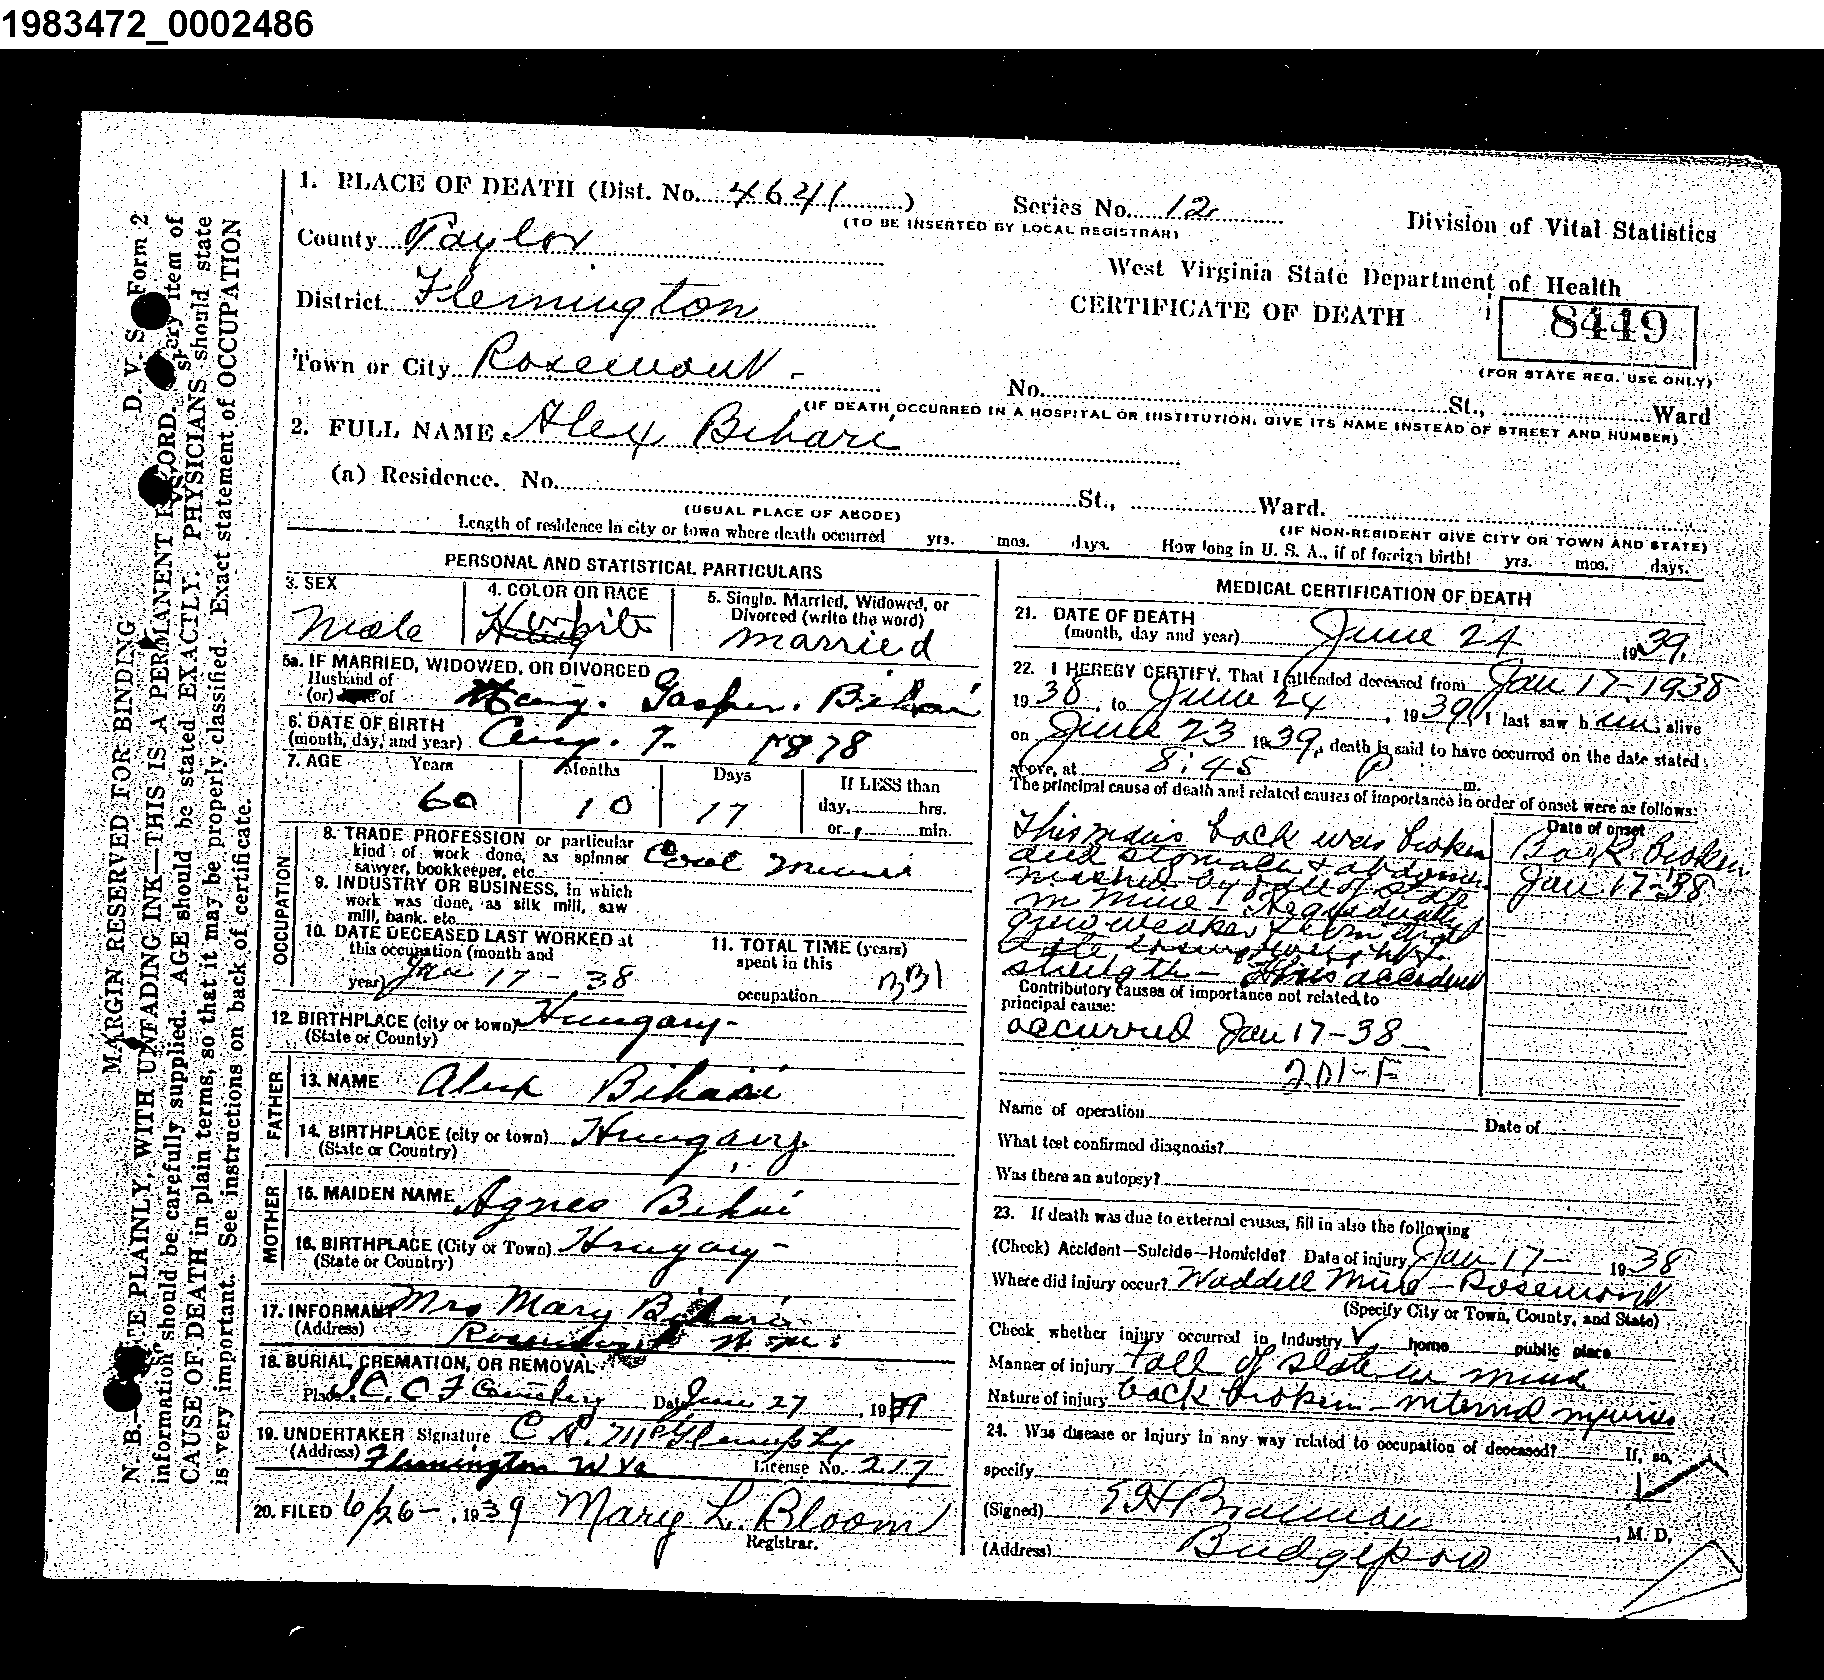 1983472_0002486
1. PLACE OF DEATH (Dist. No. 4641) Series No. 12
(TO BE INSERTED BY LOCAL REGISTRAR)
Division of Vital Statistics
County Taylor
West Virginia State Department of Health
District Flemington
CERTIFICATE OF DEATH
8449
(FOR STATE REG. USE ONLY)
Town or City Rosemont - No. St., Ward
(IF DEATH OCCURRED IN A HOSPITAL OR INSTITUTION, GIVE ITS NAME INSTEAD OF STREET AND NUMBER)
2. FULL NAME Alex Bihari
(a) Residence. No. St., Ward.
(USUAL PLACE OF ABODE) (IF NON-RESIDENT GIVE CITY OR TOWN AND STATE)
Length of residence in city or town where death occurred yrs. mos. days. How long in U. S. A., if of foreign birth! yrs. mos. days.
PERSONAL AND STATISTICAL PARTICULARS
3. SEX 4. COLOR OR RACE 5. Single, Married, Widowed, or
Divorced (write the word)
Male White married
5a. IF MARRIED, WIDOWED, OR DIVORCED
Husband of
(or) of Gasper. Bihari
6. DATE OF BIRTH
(month, day, and year) Aug. 7- 1878
7. AGE Years Months Days If LESS than
60 10 17 day, hrs.
or min.
OCCUPATION
8. TRADE PROFESSION or particular
kind of work done, as spinner
sawyer, bookkeeper, etc. Coal miner
9. INDUSTRY OR BUSINESS, in which
work was done, as silk mill, saw
mill, bank. etc.
10. DATE DECEASED LAST WORKED at
this occupation (month and
year) Jan 17 - 38
11. TOTAL TIME (years)
spent in this
occupation
12. BIRTHPLACE (city or town) Hungary-
(State or County)
FATHER
13. NAME Alex Bihari
14. BIRTHPLACE (city or town) Hungary
(State or Country)
MOTHER
15. MAIDEN NAME Agnes Bihari
16. BIRTHPLACE (City or Town) Hungary-
(State or Country)
17. INFORMANT Mrs Mary Bihari
(Address) Rosemont
18. BURIAL, CREMATION, OR REMOVAL
Place Cemetery Date June 27, 19
19. UNDERTAKER Signature
(Address) Flemington W Va License No. 217
20. FILED 6/26-, 1939 Mary L. Bloom
Registrar.
MEDICAL CERTIFICATION OF DEATH
21. DATE OF DEATH
(month, day and year) June 24 1939.
22. I HEREBY CERTIFY, That I attended deceased from Jan 17-1938
1938, to June 24, 1939, I last saw him alive
on June 23 1939, death is said to have occurred on the date stated
above, at 8:45 P. m.
The principal cause of death and related causes of importance in order of onset were as follows:
Date of onset
This mans back was broken Back broken
and stomach & abdomen Jan 17-'38
mashed by fall of slate
in Mine - He gradually
grew weaker from
losing
strength - This accident
Contributory causes of importance not related to
principal cause:
occurred Jan 17-38
201-F
Name of operation Date of
What test confirmed diagnosis?
Was there an autopsy?
23. If death was due to external causes, fill in also the following
(Check) Accident—Suicide—Homicide? Date of injury Jan 17- 1938
Where did injury occur? Waddell Mine - Rosemont
(Specify City or Town, County, and State)
Check whether injury occurred in Industry ✓ home public place
Manner of injury Fall of slate in mine
Nature of injury back broken - internal injuries
24. Was disease or injury in any way related to occupation of deceased? If, so,
specify
(Signed) M. D.
(Address) Bridgeport
D. V. S. Form 2
MARGIN RESERVED FOR BINDING
N. B.— PLAINLY, WITH UNFADING INK—THIS IS A PERMANENT RECORD. Every item of
information should be carefully supplied. AGE should be stated EXACTLY. PHYSICIANS should state
CAUSE OF DEATH in plain terms, so that it may be properly classified. Exact statement of OCCUPATION
is very important. See instructions on back of certificate.